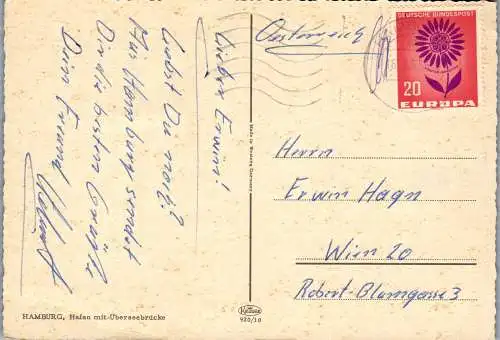 Lieber Erwin!
Lebst Du noch?
Aus Hamburg sendet
Dir die besten Grüße
Dein Freund
Helmut
HAMBURG, Hafen mit Überseebrücke
Made in Western Germany
Krüger
920/10
Oesterreich
DEUTSCHE BUNDESPOST
20
EUROPA
Herrn
Erwin Hagn
Wien 20
Robert-Blumgasse 3